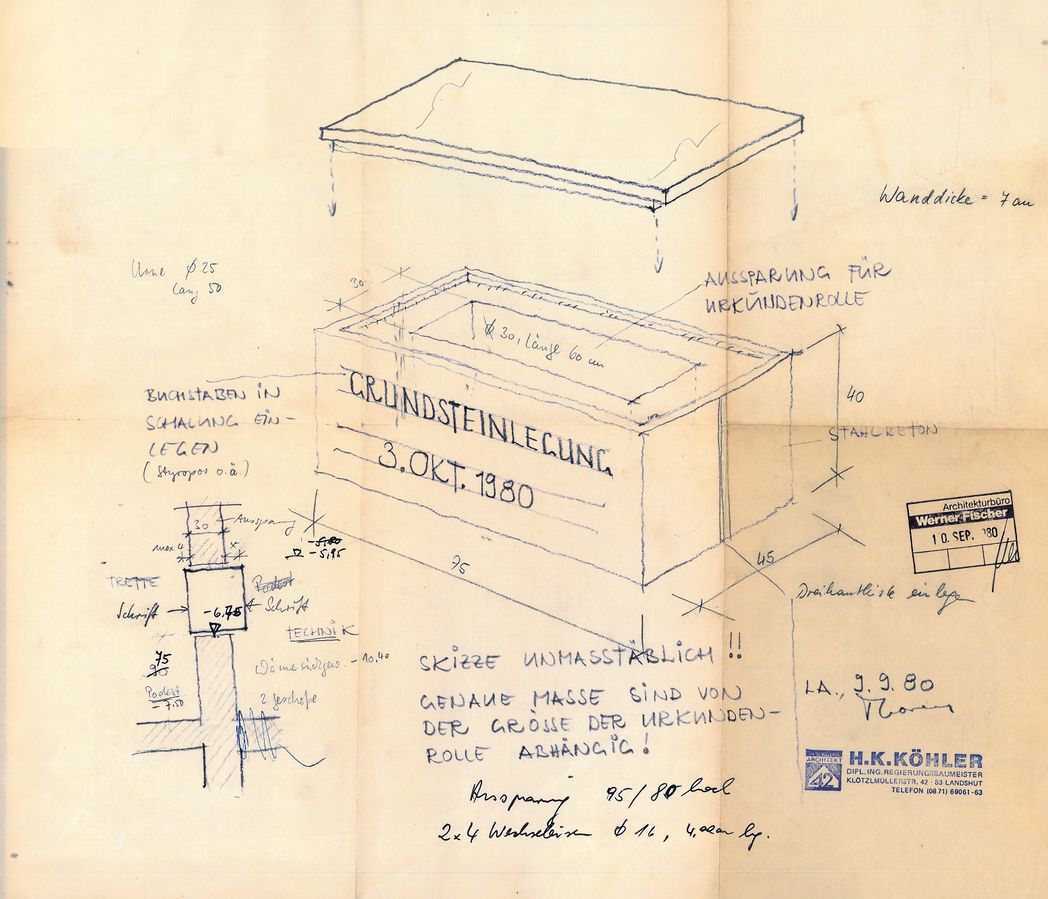 Wanddicke = 7 cm
Urne ϕ 25
lang 50
AUSSPARUNG FÜR
URKUNDENROLLE
30
ϕ 30, Länge 60 cm
BUCHSTABEN IN
SCHALUNG EIN-
LEGEN
(Styropor o.ä.)
GRUNDSTEINLEGUNG
3. OKT. 1980
40
STAHLBETON
75
45
Architekturbüro
Werner Fischer
10. SEP. 80
Dreikantleiste einlegen
30
Aussparung
max 4
-5,95
TREPPE
Podest
Schrift
-6.75
Schrift
TECHNIK
75
90
Podest
-7.50
- 10.40
2 geschoße
SKIZZE UNMASSTÄBLICH !!
GENAUE MASSE SIND VON
DER GRÖSSE DER URKUNDEN-
ROLLE ABHÄNGIG!
LA., 9. 9. 80
ARCHITEKT
42
H.K.KÖHLER
DIPL.ING. REGIERUNGSBAUMEISTER
KLÖTZLMÜLLERSTR. 42 · 83 LANDSHUT
TELEFON (0871) 69061-63
Aussparung 95/80 hoch
2x4 Wechseleisen ϕ 16,